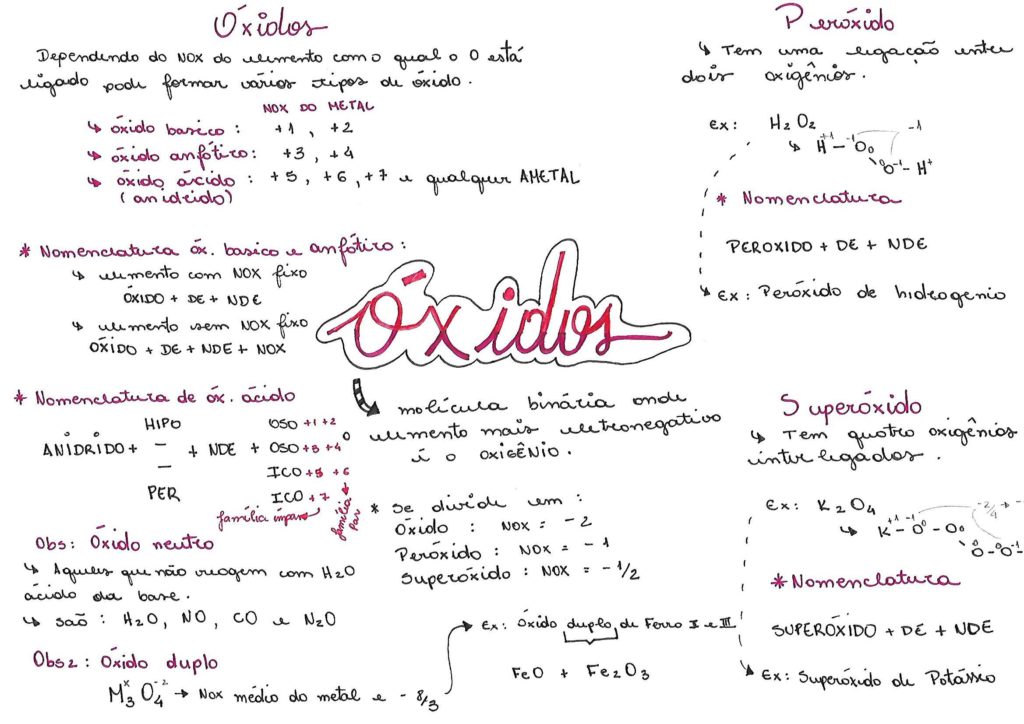 Óxidos
Dependendo do NOX do elemento com o qual o O está
ligado pode formar vários tipos de óxido.
NOX DO METAL
↳ óxido basico : +1 , +2
↳ óxido anfótiro : +3 , +4
↳ óxido ácido : +5 , +6 , +7 e qualquer AMETAL
(anidrido)
* Nomenclatura óx. basico e anfótiro :
↳ elemento com NOX fixo
ÓXIDO + DE + NDE
↳ elemento sem NOX fixo
ÓXIDO + DE + NDE + NOX
* Nomenclatura de óx. ácido
HIPO OSO +1 +2
ANIDRIDO + – + NDE + OSO +3 +4
– ICO +5 +6
PER ICO +7
família impar
família par
Obs : Óxido neutro
↳ Aqueles que não reagem com H2O
ácido da base.
↳ saõ : H2O, NO, CO e N2O
Obs2 : Óxido duplo
M3^x O4^-2 → Nox médio do metal e - 8/3
Óxidos
molécula binária onde
o elemento mais eletronegativo
é o OXIGÊNIO .
* Se divide em :
Óxido : NOX = -2
Peróxido : NOX = -1
Superóxido : NOX = -1/2
→ Ex : Óxido duplo de Ferro I e III
FeO + Fe2O3
Peróxido
↳ Tem uma ligação entre
dois oxigênios.
Ex : H2O2
↳ H^+1 – ^-1O^0 -1
^0O^-1 – H^+
* Nomenclatura
PEROXIDO + DE + NDE
Ex : Peróxido de hidrogenio
Superóxido
↳ Tem quatro oxigênios
interligados .
Ex : K2O4
↳ K^+1 – ^-1O^0 – O^0 -2/4 →
O^0 – ^0O^-1
* Nomenclatura
SUPERÓXIDO + DE + NDE
Ex : Superóxido de Potássio